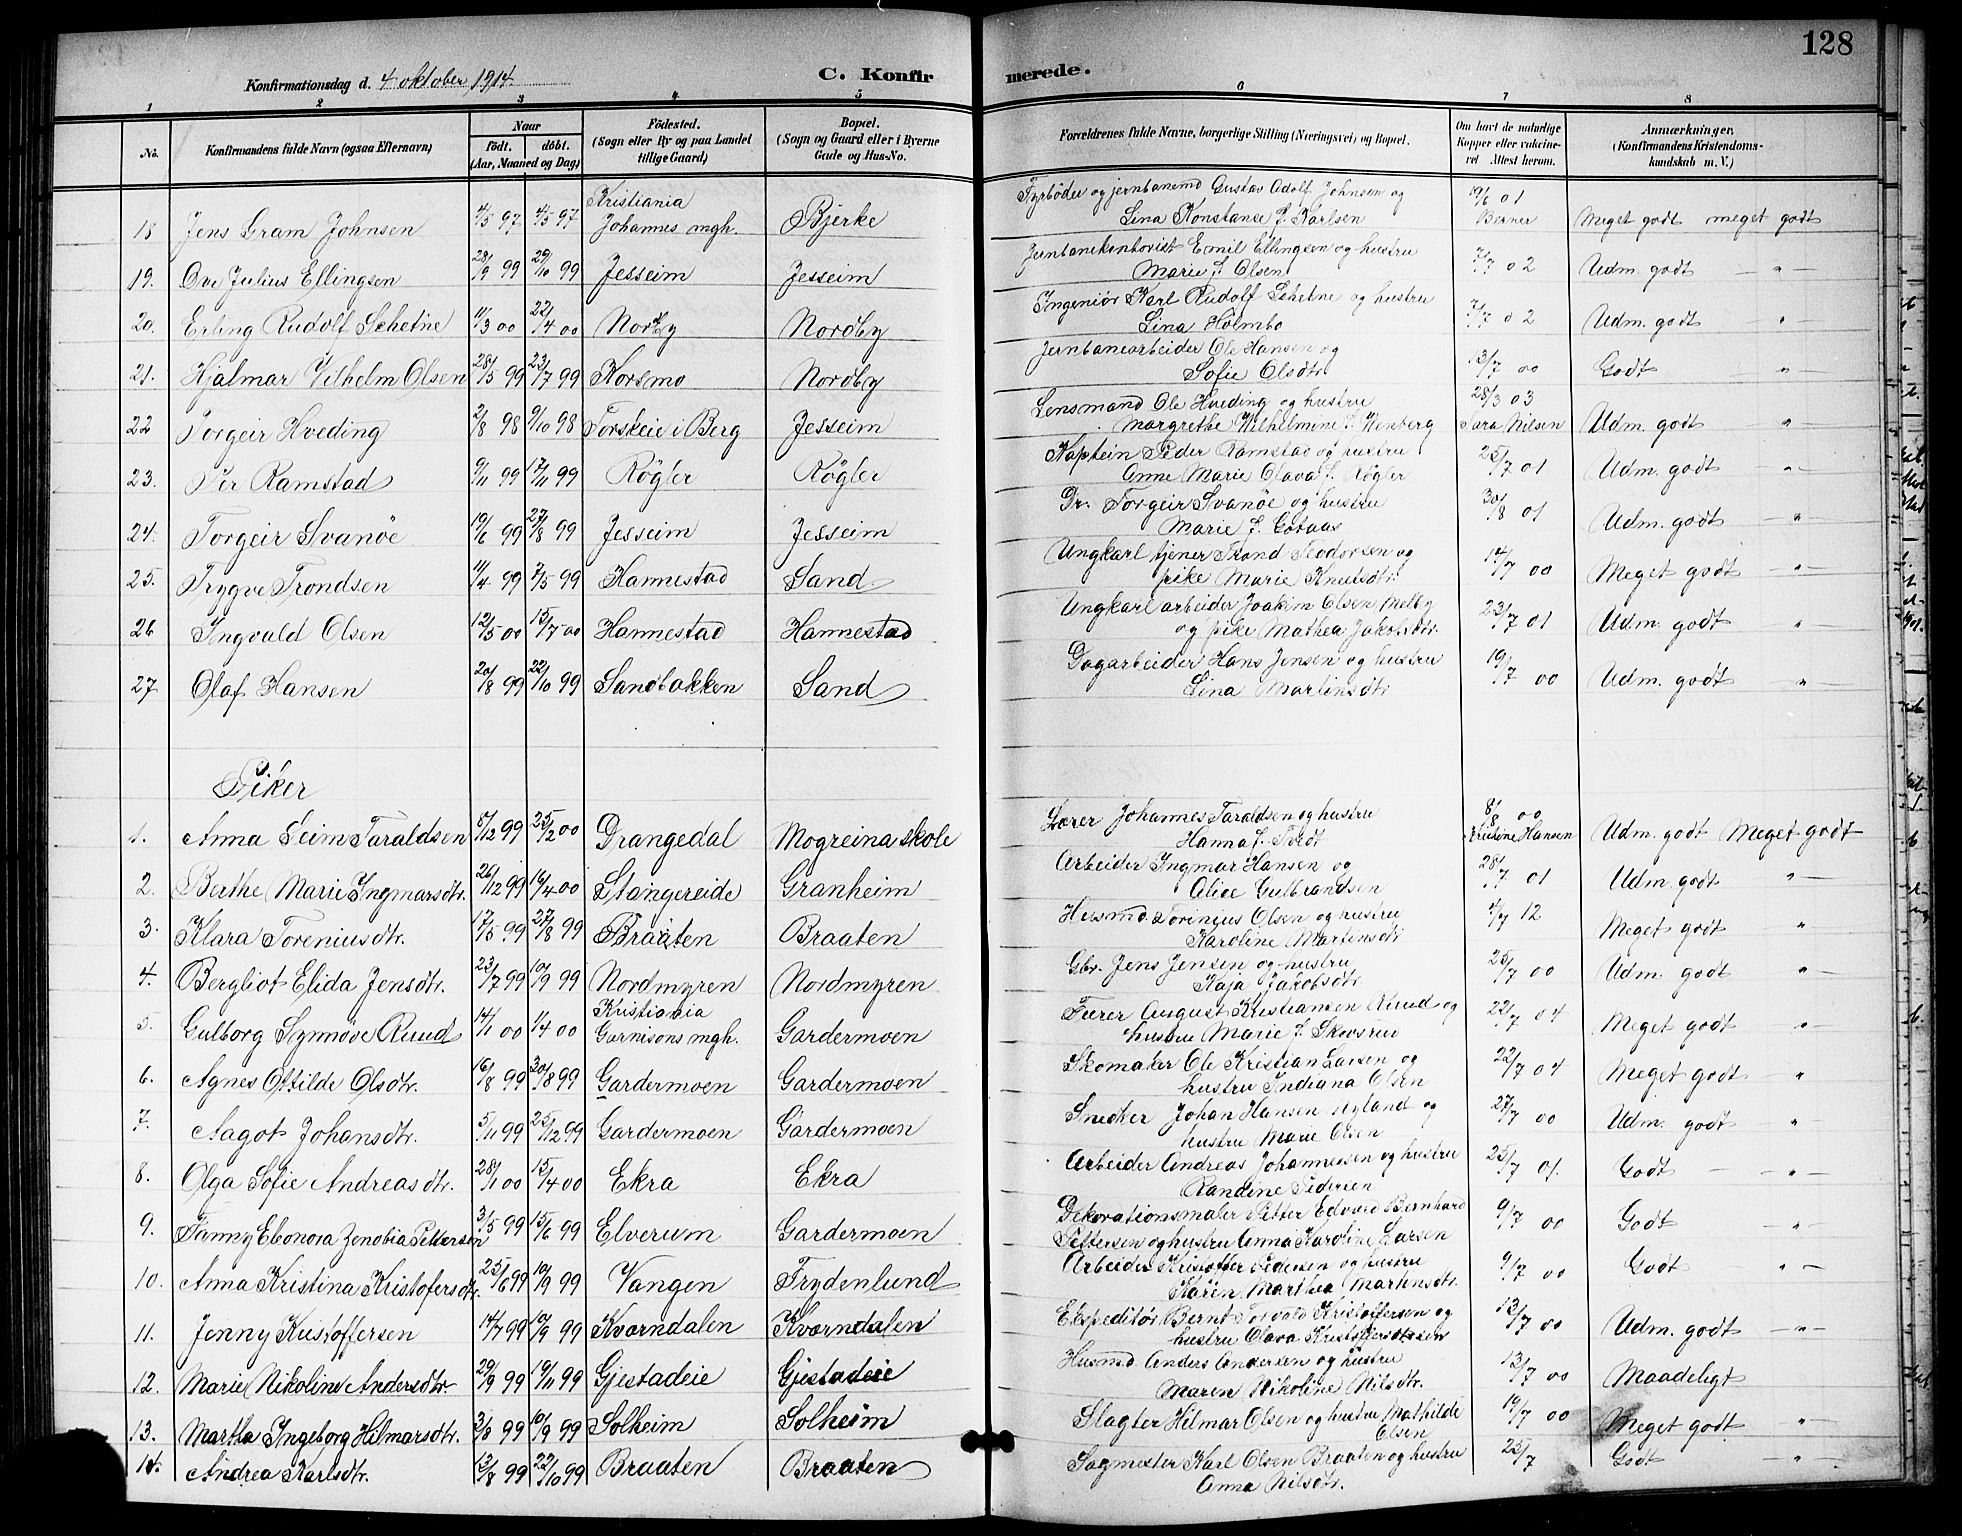 128
Konfirmationsdag d. 4 oktober 1914. C. Konfirmerede.
1 2 3 4 5 6 7 8
No. Konfirmandens fulde Navn (ogsaa Efternavn) Naar födt. döbt. (Aar, Maaned og Dag) Födested. (Sogn eller By og paa Landet tillige Gaard) Bopæl. (Sogn og Gaard eller i Byerne Gade og Hus-No. Forældrenes fulde Navne, borgerlige Stilling (Næringsvei) og Bopæl. Om havt de naturlige Kopper eller vaccineret Attest herom. Anmærkninger, (Konfirmandens Kristendomskundskab m. V.)
18 Jens Gram Johnsen 4/5 97 4/5 97 Kristiania Johannes mgh. Bjerke Fyrböder og jernbanemd Gustav Adolf Johnsen og Lina Konstanse f. Karlsen 19/6 01 Berner Meget godt meget godt
19. Ove Julius Ellingsen 28/9 99 29/10 99 Jesseim Jesseim Jernbanekontorist Emil Ellingsen og hustru Marie f. Olsen 7/7 02 Udm. godt — " —
20. Erling Rudolf Schetne 11/3 00 22/4 00 Nordby Nordby Ingeniör Karl Rudolf Schetne og hustru Lina Holmbo 7/7 02 Udm. godt "
21. Hjalmar Vilhelm Olsen 28/5 99 23/7 99 Korsmo Nordby Jernbanearbeider Ole Hansen og Sofie Olsdtr. 13/7 00 Godt "
22 Torgeir Hveding 2/8 98 9/10 98 Torskeie i Berg Jesseim Lensmand Ole Hveding og hustru Margrethe Wilhelmine f. Wenberg 28/3 03 Sara Nilsen Udm. godt "
23. Per Ramstad 9/11 99 17/11 99 Røgler Røgler Kaptein Peder Ramstad og hustru Anne Marie Olava f. Røgler 25/7 01 Udm. godt "
24. Torgeir Svanöe 19/6 99 27/8 99 Jesseim Jesseim Dr. Torgeir Svanöe og hustru Marie f. Gotaas 30/8 01 Udm. godt "
25. Trygve Trondsen 11/4 99 7/5 99 Hannestad Sand Ungkarl tjener Trond Teodorsen og pike Marie Knutsdtr. 14/7 00 Meget godt "
26 Ingvald Olsen 12/5 00 15/7 00 Hannestad Hannestad Ungkarl arbeider Joakim Olsen Melby og pike Mathea Jakobsdtr. 23/7 01 Udm. godt "
27 Olaf Hansen 20/8 99 22/10 99 Sandbakken Sand Dagarbeider Hans Jensen og hustru Lina Martinsdtr 19/7 00 Udm. godt "
Piker
1. Anna Seim Taraldsen 8/12 99 25/2 00 Drangedal Mogreina skole Lærer Johannes Taraldsen og hustru Hanna f. Tvedt 8/8 00 Kristine Hansen Udm. godt Meget godt
2. Berthe Marie Ingmarsdtr. 26/12 99 16/4 00 Stangereide Granheim Arbeider Ingmar Hansen og Alice Gulbrandsen 28/7 01 Udm. godt "
3. Klara Toreniusdtr. 17/5 99 27/8 99 Braaten Braaten Husmd. Torenius Olsen og hustru Karoline Martinsdtr 4/7 12 Meget godt "
4. Bergliot Elida Jensdtr. 23/7 99 10/9 99 Nordmyren Nordmyren Gbr. Jens Jensen og hustru Kaja Jakobsdtr 25/7 00 Udm. godt "
5. Gulborg Synnöve Ruud 14/1 00 1/4 00 Kristiania Garnisons mgh. Gardermoen Furer August Kristiansen Ruud og hustru Marie f. Skovsrud 22/7 04 Meget godt "
6. Agnes Otilde Olsdtr. 16/8 99 20/8 99 Gardermoen Gardermoen Skomaker Ole Kristian Larsen og hustru Indiana Olsen 22/7 04 Meget godt "
7. Aagot Johansdtr. 5/11 99 25/12 99 Gardermoen Gardermoen Snedker Johan Hansen Nyland og hustru Marie Olsen 27/7 00 Udm. godt "
8. Olga Sofie Andreasdtr. 28/1 00 15/4 00 Ekra Ekra Arbeider Andreas Johannessen og hustru Randine Pedersen 25/7 01. Godt — " —
9. Fanny Eleonora Zenobia Pettersen 31/5 99 15/6 99 Elverum Gardermoen Dekorationsmaler Petter Edvard Bernhard Pettersen og hustru Anna Karoline Larsen 9/7 00 Godt "
10. Anna Kristina Kristofersdtr 25/6 99 10/9 99 Vangen Frydenlund Arbeider Kristoffer Pedersen og hustru Karen Marthea Martinsdtr. 9/7 00 Godt "
11. Jenny Kristoffersen 14/7 99 10/9 99 Kværndalen Kværndalen Ekspeditör Bernt Torvald Kristoffersen og hustru Olava 13/7 00 Udm. godt — " —
12. Marie Nikoline Andersdtr 29/9 99 19/11 99 Gjestadeie Gjestadeie Husmd. Anders Andersen og hustru Maren Nikoline Nilsdtr. 13/7 00 Maadeligt
13. Martha Ingeborg Hilmarsdtr. 3/8 99 10/9 99 Solheim Solheim Slagter Hilmar Olsen og hustru Mathilde Olsen 19/7 00 Meget godt "
14. Andrea Karlsdtr. 13/8 99 22/10 99 Braaten Braaten Sagmester Karl Olsen Braaten og hustru Anna Nilsdtr. 25/7 Godt — " —